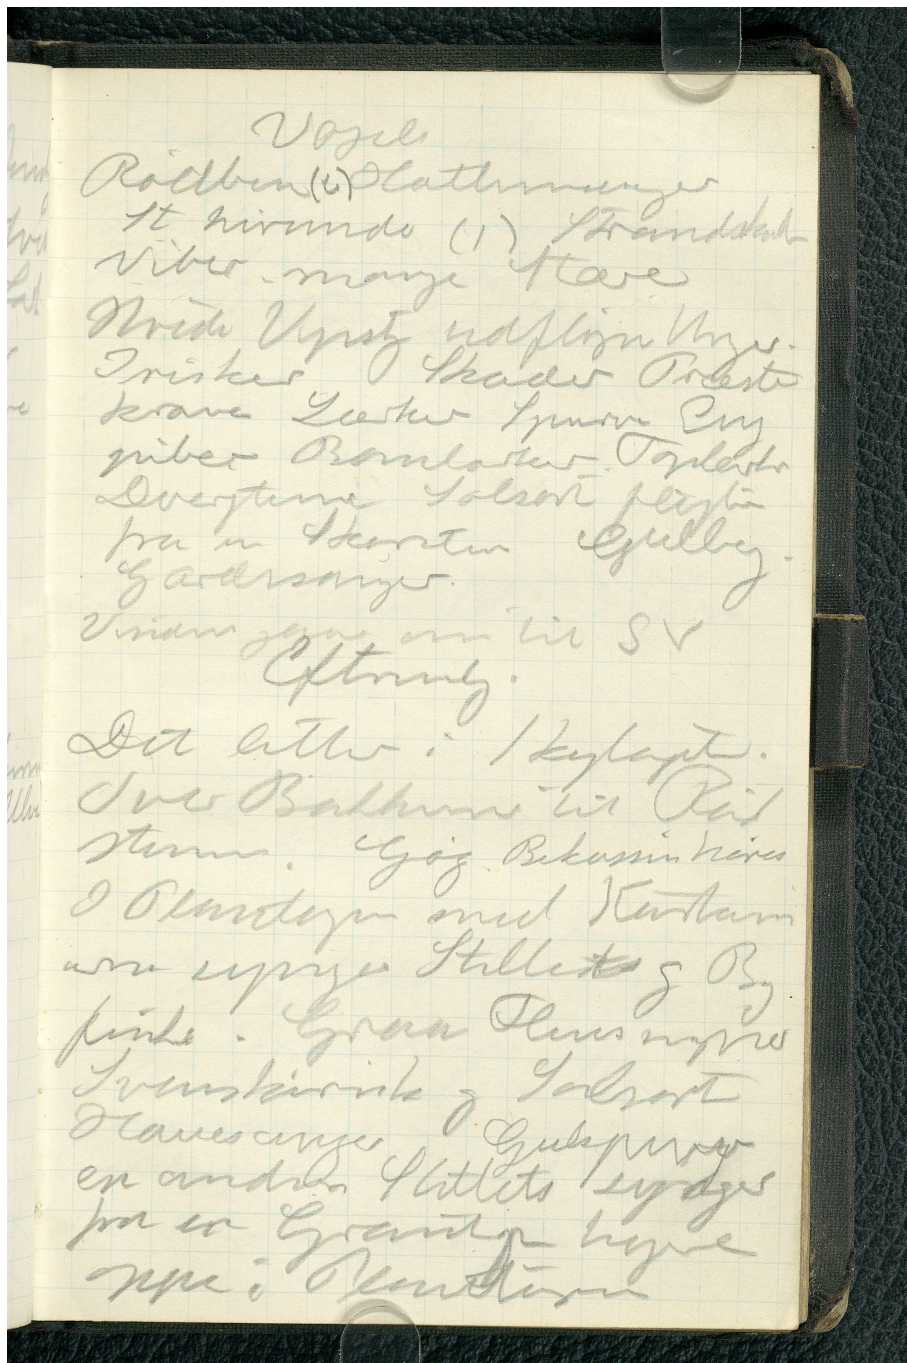 Vogels
Rödben (2) Kattunger
St hirundo (1) Strandskade
Viber mange Stære
Hvide Vipst udfløjne Unger.
Irisker Skader Præste
krave Lærker Spurve Eng
piber Bomlærker Toplærke
Dværgterne Solsort fløjter
fra en Skorsten Gulbug.
Gærdesanger.
Vinden gaar om til SV
Eftermdg.
Det letter i Skylaget.
over Bakkerne til Rød
stenene. Gøg Bekassin høres
I Plantagen med
synger Stillets og Bog
finke. Graa Fluesnapper
Svenskirisk og Solsort
Havesanger Gulspurv
en anden Stillits synger
fra en Grantop højere
oppe i Plantagen